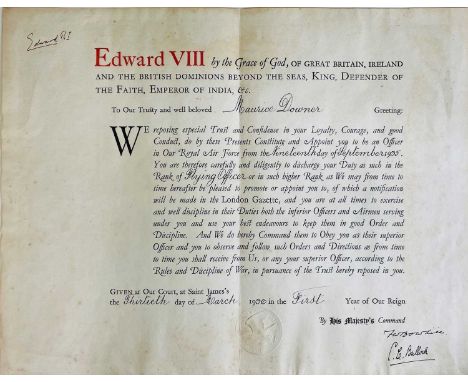 Edward R I
Edward VIII by the Grace of God, OF GREAT BRITAIN, IRELAND
AND THE BRITISH DOMINIONS BEYOND THE SEAS, KING, DEFENDER OF
THE FAITH, EMPEROR OF INDIA, &c.
To Our Trusty and well beloved Maurice Downer Greeting:
WE reposing especial Trust and Confidence in your Loyalty, Courage, and good
Conduct, do by these Presents Constitute and Appoint you to be an Officer
in Our Royal Air Force from the Nineteenth day of September 1935.
You are therefore carefully and diligently to discharge your Duty as such in the
Rank of Flying Officer or in such higher Rank as We may from time to
time hereafter be pleased to promote or appoint you to, of which a notification
will be made in the London Gazette, and you are at all times to exercise
and well discipline in their Duties both the inferior Officers and Airmen serving
under you and use your best endeavours to keep them in good Order and
Discipline. And We do hereby Command them to Obey you as their superior
Officer and you to observe and follow such Orders and Directions as from time
to time you shall receive from Us, or any your superior Officer, according to the
Rules and Discipline of War, in pursuance of the Trust hereby reposed in you.
GIVEN at Our Court, at Saint James's
the Thirtieth day of March 1936 in the First Year of Our Reign
By His Majesty's Command